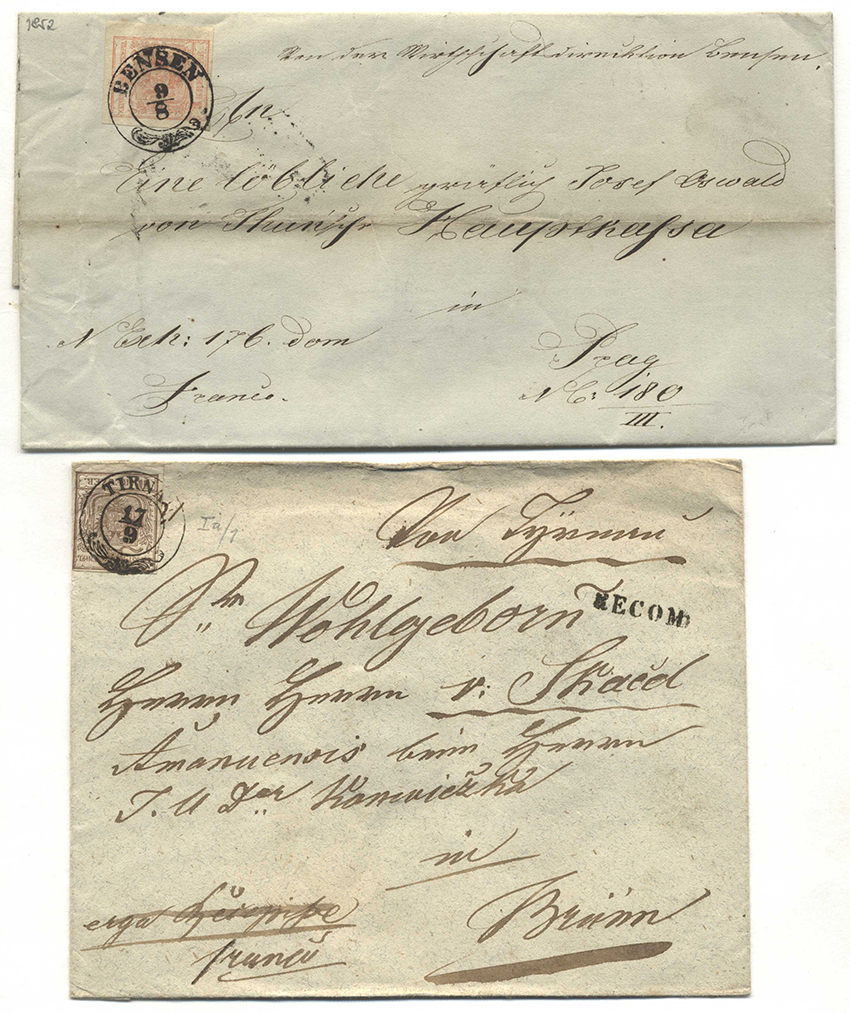 1852
BENSEN
9
8
Von der Wirthschaftsdirecktion Bensen.
An
Eine löbliche gräflich Josef Oswald
von Thun'sche Hauptkassa
in
N Exh: 176. dom
Prag
Franco.
NC: 180
III.
TIRNAU
17
9
Ia/1
Von Tyrnau
RECOM
Sr Wohlgeborn
Herrn Herrn v: Skacel
Amanuensis beim Herrn
J. U Dor
in
erga
Brünn
franco